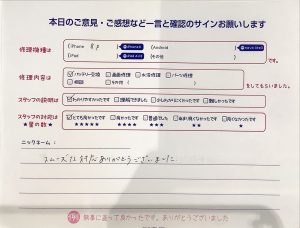 本日のご意見・ご感想など一言と確認のサインお願いします
修理機種は
(iPhone 8p
(Android
(iPad
(その他
です。
修理内容は
バッテリー交換 画面修理 水没修理 パーツ修理
その他
をしてもらいました。
スタッフの説明は
わかりやすかったです 理解できました 少しわかりにくかったです 難しかったです
スタッフの対応は
★星の数★
とても良かったです 良かったです 普通でした あまり良くなかったです 良くなかったです
★★★★★ ★★★★ ★★★ ★★ ★
ニックネーム:
スムーズな対応ありがとうございました
執事に逢って良かったです。ありがとうございました